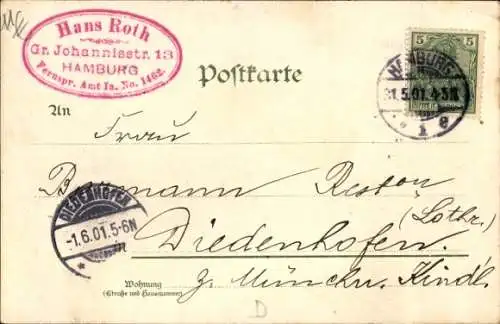 Hans Roth
Gr. Johannisstr. 13
HAMBURG
Fernspr. Amt Ia. No. 1462.
Postkarte
5 5
HAMBURG
31.5.01.4-5N
* 1 e
An
Frau
Bormann Restau
(Lothr.)
DIEDENHOFEN
-1.6.01.5-6N
*
Diedenhofen.
z. Münchn. Kindl.
Wohnung
(Straße und Hausnummer)
D